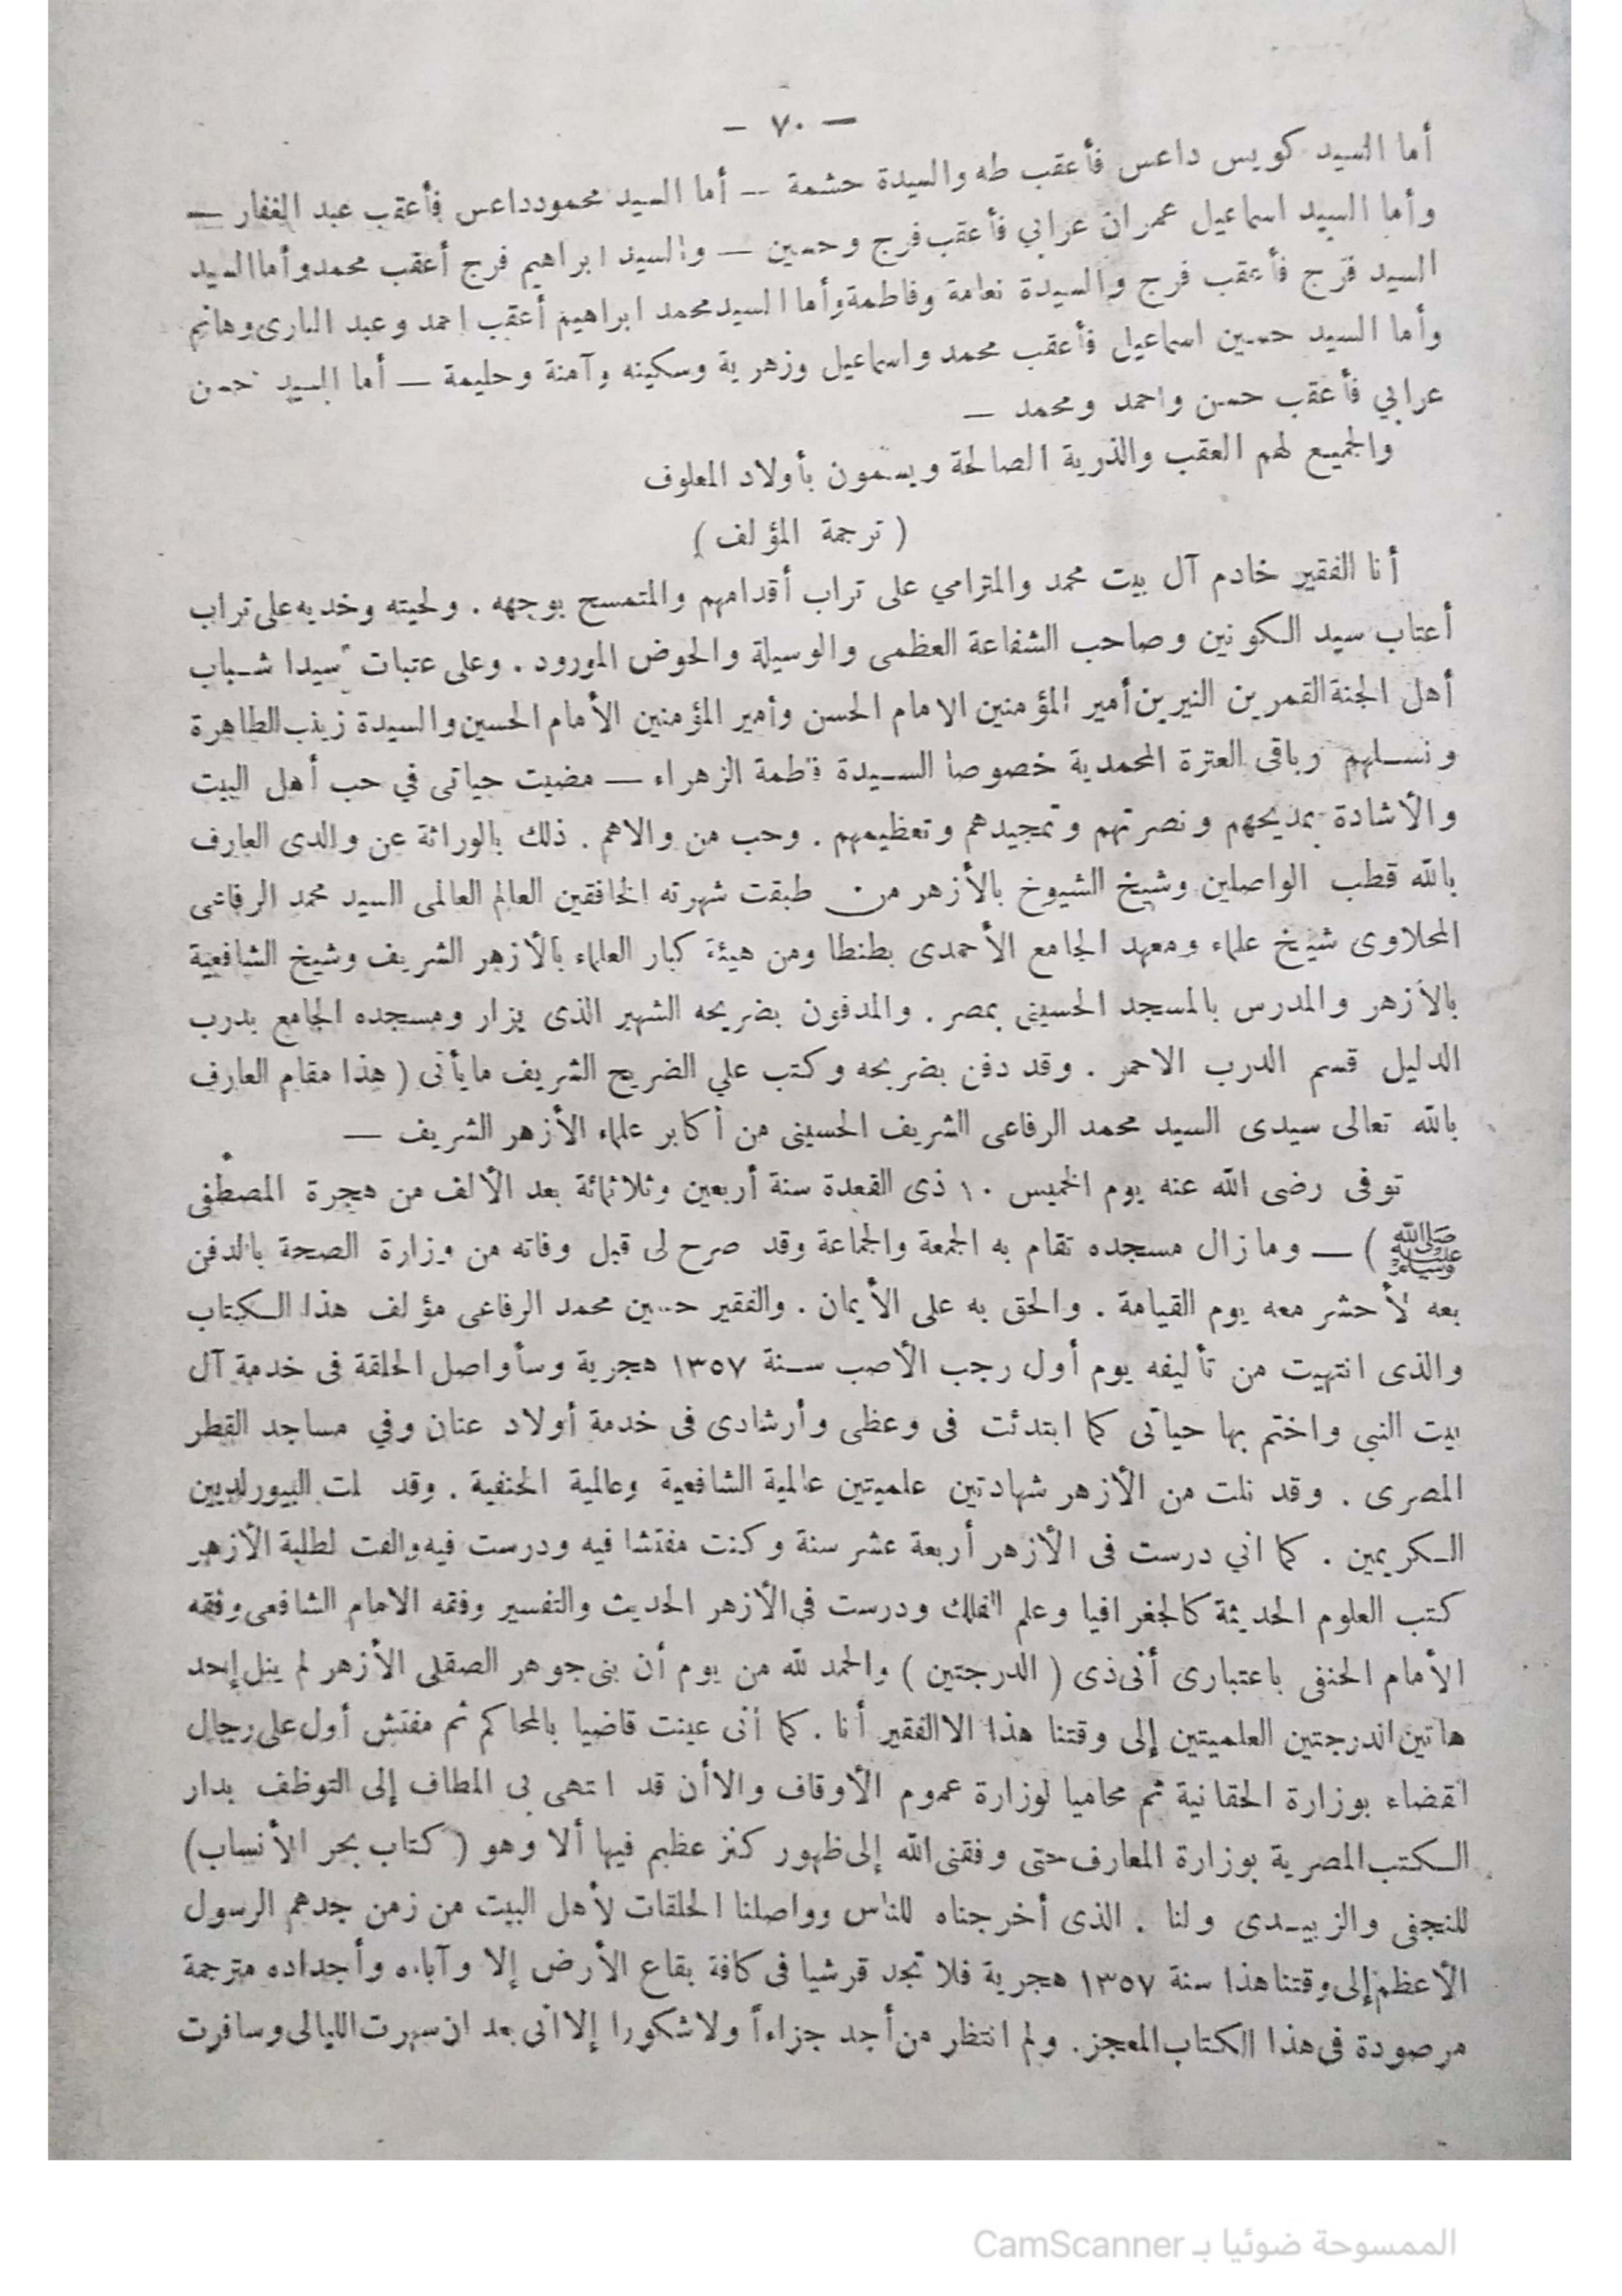 — ٧٠ —
أما السيد كويس داعس فأعقب طه والسيدة حشمة — أما السيد محمود داعس فأعقب عبد الغفار —
وأما السيد اسماعيل عمران عرابي فأعقب فرج وحسين — والسيد ابراهيم فرج أعقب محمد وأما السيد
السيد فرج فأعقب فرج والسيدة نعامة وفاطمة وأما السيد محمد ابراهيم أعقب احمد وعبد البارى وهانم
وأما السيد حسين اسماعيل فأعقب محمد واسماعيل وزهرية وسكينه وآمنة وحليمة — أما السيد حسن
عرابي فأعقب حسن واحمد ومحمد —
والجميع لهم العقب والذرية الصالحة ويسمون بأولاد المعلوف
( ترجمة المؤلف )
أنا الفقير خادم آل بيت محمد والمترامي على تراب أقدامهم والمتمسح بوجهه . ولحيته وخديه على تراب
أعتاب سيد الكونين وصاحب الشفاعة العظمى والوسيلة والحوض المورود . وعلى عتبات سيدا شباب
أهل الجنة القمرين النيرين أمير المؤمنين الامام الحسن وأمير المؤمنين الأمام الحسين والسيدة زينب الطاهرة
ونسلهم وباقى العترة المحمدية خصوصا السيدة فاطمة الزهراء — مضيت حياتى في حب أهل البيت
والأشادة بمديحهم ونصرتهم وتمجيدهم وتعظيمهم . وحب من والاهم . ذلك بالوراثة عن والدى العارف
بالله قطب الواصلين وشيخ الشيوخ بالأزهر من طبقت شهرته الخافقين العالم العالمى السيد محمد الرفاعى
المحلاوى شيخ علماء ومعهد الجامع الأحمدى بطنطا ومن هيئة كبار العلماء بالأزهر الشريف وشيخ الشافعية
بالأزهر والمدرس بالمسجد الحسينى بمصر . والمدفون بضريحه الشهير الذى يزار ومسجده الجامع بدرب
الدليل قسم الدرب الاحمر . وقد دفن بضريحه وكتب علي الضريح الشريف ما يأتى ( هذا مقام العارف
بالله تعالى سيدى السيد محمد الرفاعى الشريف الحسينى من أكابر علماء الأزهر الشريف —
توفى رضى الله عنه يوم الخميس ١٠ ذى القعدة سنة أربعين وثلاثمائة بعد الألف من هجرة المصطفى
ﷺ ) — وما زال مسجده تقام به الجمعة والجماعة وقد صرح لى قبل وفاته من وزارة الصحة بالدفن
بعه لأحشر معه يوم القيامة . والحق به على الأيمان . والفقير حسين محمد الرفاعى مؤلف هذا الكتاب
والذى انتهيت من تأليفه يوم أول رجب الأصب سنة ١٣٥٧ هجرية وسأواصل الحلقة فى خدمة آل
بيت النبي واختم بها حياتى كما ابتدئت فى وعظى وأرشادى فى خدمة أولاد عنان وفي مساجد القطر
المصرى . وقد نلت من الأزهر شهادتين علميتين عالمية الشافعية وعالمية الحنفية . وقد لت البيورلديين
الكريمين . كما اني درست فى الأزهر أربعة عشر سنة وكنت مفتشا فيه ودرست فيه والفت لطلبة الأزهر
كتب العلوم الحديثة كالجغرافيا وعلم الفلك ودرست فى الأزهر الحديث والتفسير وفقه الامام الشافعى وفقه
الأمام الحنفى باعتبارى أنى ذى ( الدرجتين ) والحمد لله من يوم أن بنى جوهر الصقلى الأزهر لم ينل إحد
هاتين الدرجتين العلميتين إلى وقتنا هذا الا الفقير أنا . كما أنى عينت قاضيا بالمحاكم ثم مفتش أول على رجال
القضاء بوزارة الحقانية ثم محاميا لوزارة عموم الأوقاف والاأن قد انتهى بى المطاف إلى التوظف بدار
الكتب المصرية بوزارة المعارف حتى وفقنى الله إلى ظهور كنز عظيم فيها ألا وهو ( كتاب بحر الأنساب )
للنجفى والزبيدى ولنا . الذى أخرجناه للناس وواصلنا الحلقات لأهل البيت من زمن جدهم الرسول
الأعظم إلى وقتنا هذا سنة ١٣٥٧ هجرية فلا تجد قرشيا فى كافة بقاع الأرض إلا وآباءه وأجداده مترجمة
مرصودة فى هذا الكتاب المعجز. ولم انتظر من أجد جزاءاً ولا شكورا إلا انى بعد ان سهرت الليالى وسافرت
الممسوحة ضوئيا بـ CamScanner